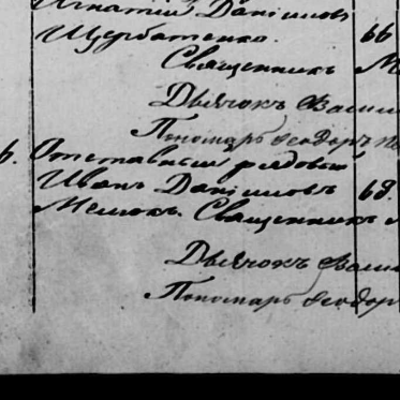 Игнатій Даніиловъ
Щербатенко. 66
Священникъ
Дьячокъ Васил
Пономарь Ѳеодоръ
6. Отставный рядовый
Иванъ Даніиловъ 68.
Мелюкъ. Священникъ
Дьячокъ Васи
Пономарь Ѳеодор